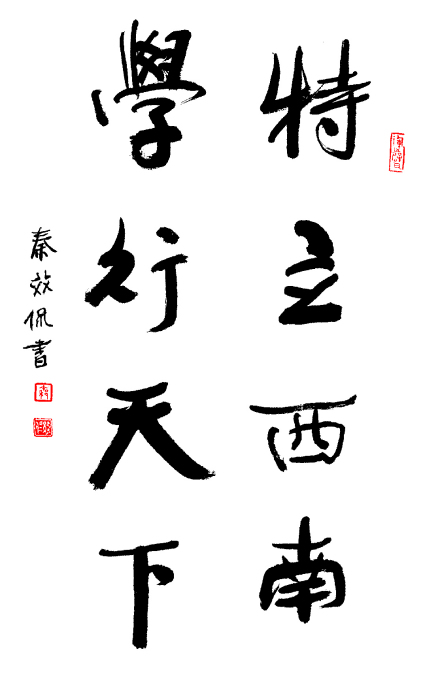 特立西南
學行天下
秦效侃書